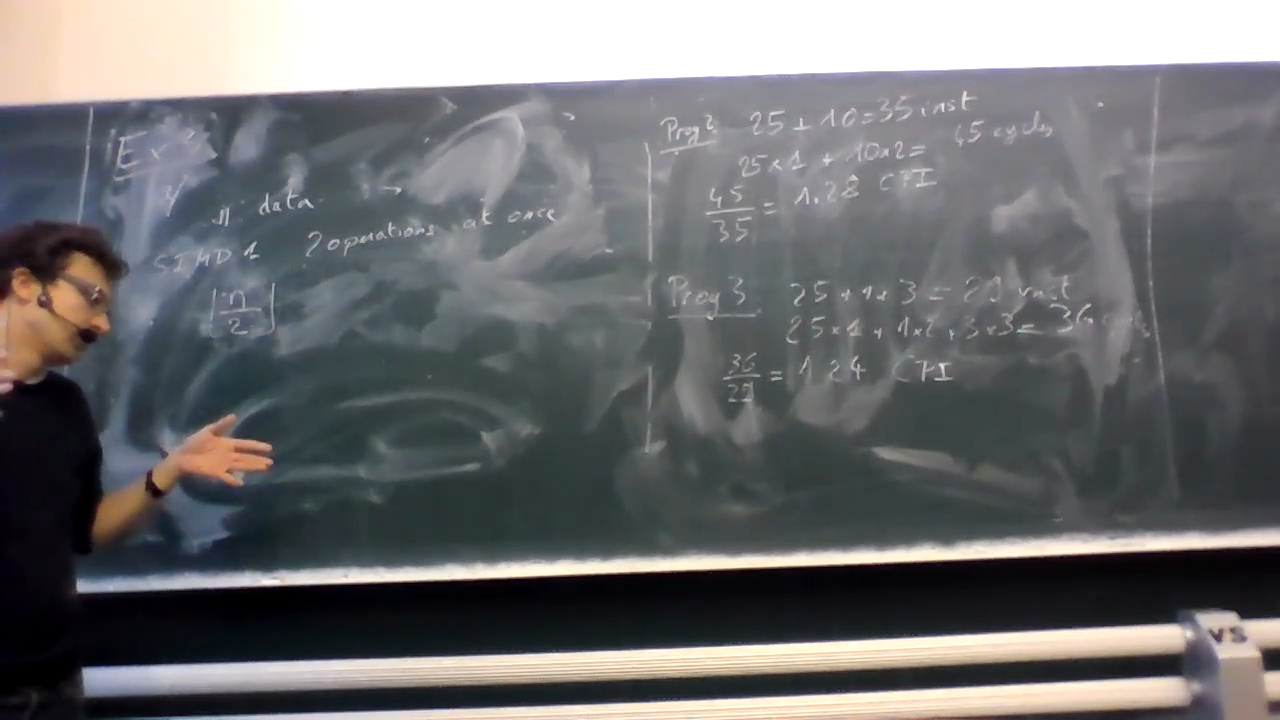 Ex 3
// data
SIMD 1 2 operations at once
⌊n/2⌋
Prog 2 25 + 10 = 35 inst
25×1 + 10×2 = 45 cycles
45/35 = 1.28 CPI
Prog 3 25 + 1 + 3 = 29 inst
25×1 + 1×2 + 3×3 = 36
36/29 = 1.24 CPI
VS